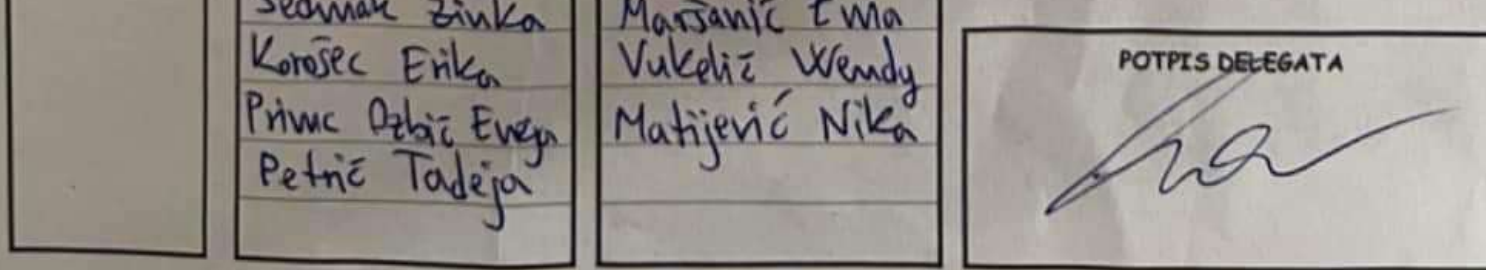 Sedmak Zinka
Korošec Erika
Primc Ozbič
Petrič Tadeja
Maršanić Ema
Vukelić Wendy
Matijević Nika
POTPIS DELEGATA